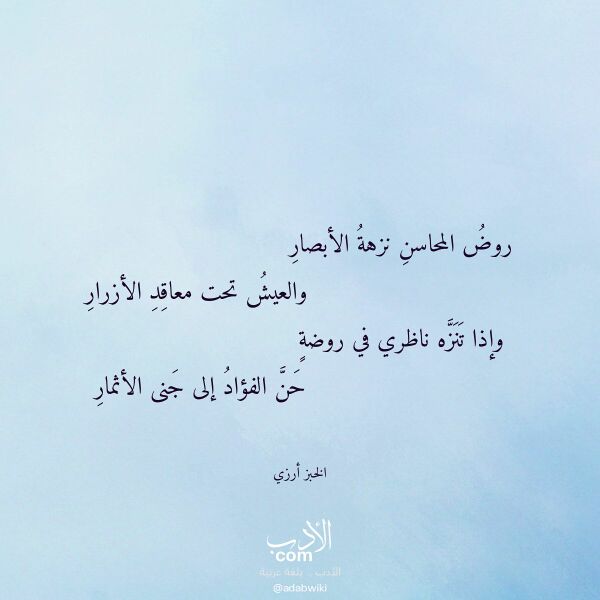 روضُ المحاسنِ نزهةُ الأبصارِ
والعيشُ تحت معاقِدِ الأزرارِ
وإذا تَنَزَّه ناظري في روضةٍ
حَنَّ الفؤادُ إلى جَنى الأثمارِ
الخبز أرزي
الأدب
com
الأدب .. بلغة عربية
@adabwiki